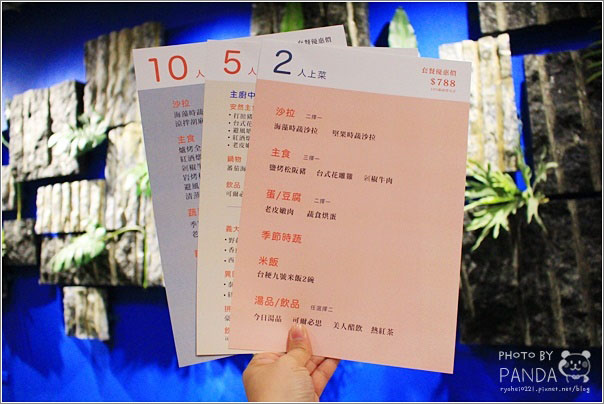 10 人
沙拉
海藻時蔬
涼拌胡麻
主食
爐烤全
紅酒燉
剁椒
岩烤
避風
清蒸
蔬
季
5 人
主廚中
安然主
打拋豬
台式花
避風塘
紅酒燉
老皮嫩
鍋物
蕃茄海
飲品
可爾必
義大
野
香
西
異
2 人上菜
套餐優惠價
$788
沙拉 二擇一
海藻時蔬沙拉 堅果時蔬沙拉
主食 三擇一
鹽烤松阪豬 台式花雕雞 剁椒牛肉
蛋/豆腐 二擇一
老皮嫩肉 蔬食烘蛋
季節時蔬
米飯
台梗九號米飯2碗
湯品/飲品 任選擇二
今日湯品 可爾必思 美人醋飲 熱紅茶
PHOTO BY
PANDA
ryohei0221.pixnet.net/blog